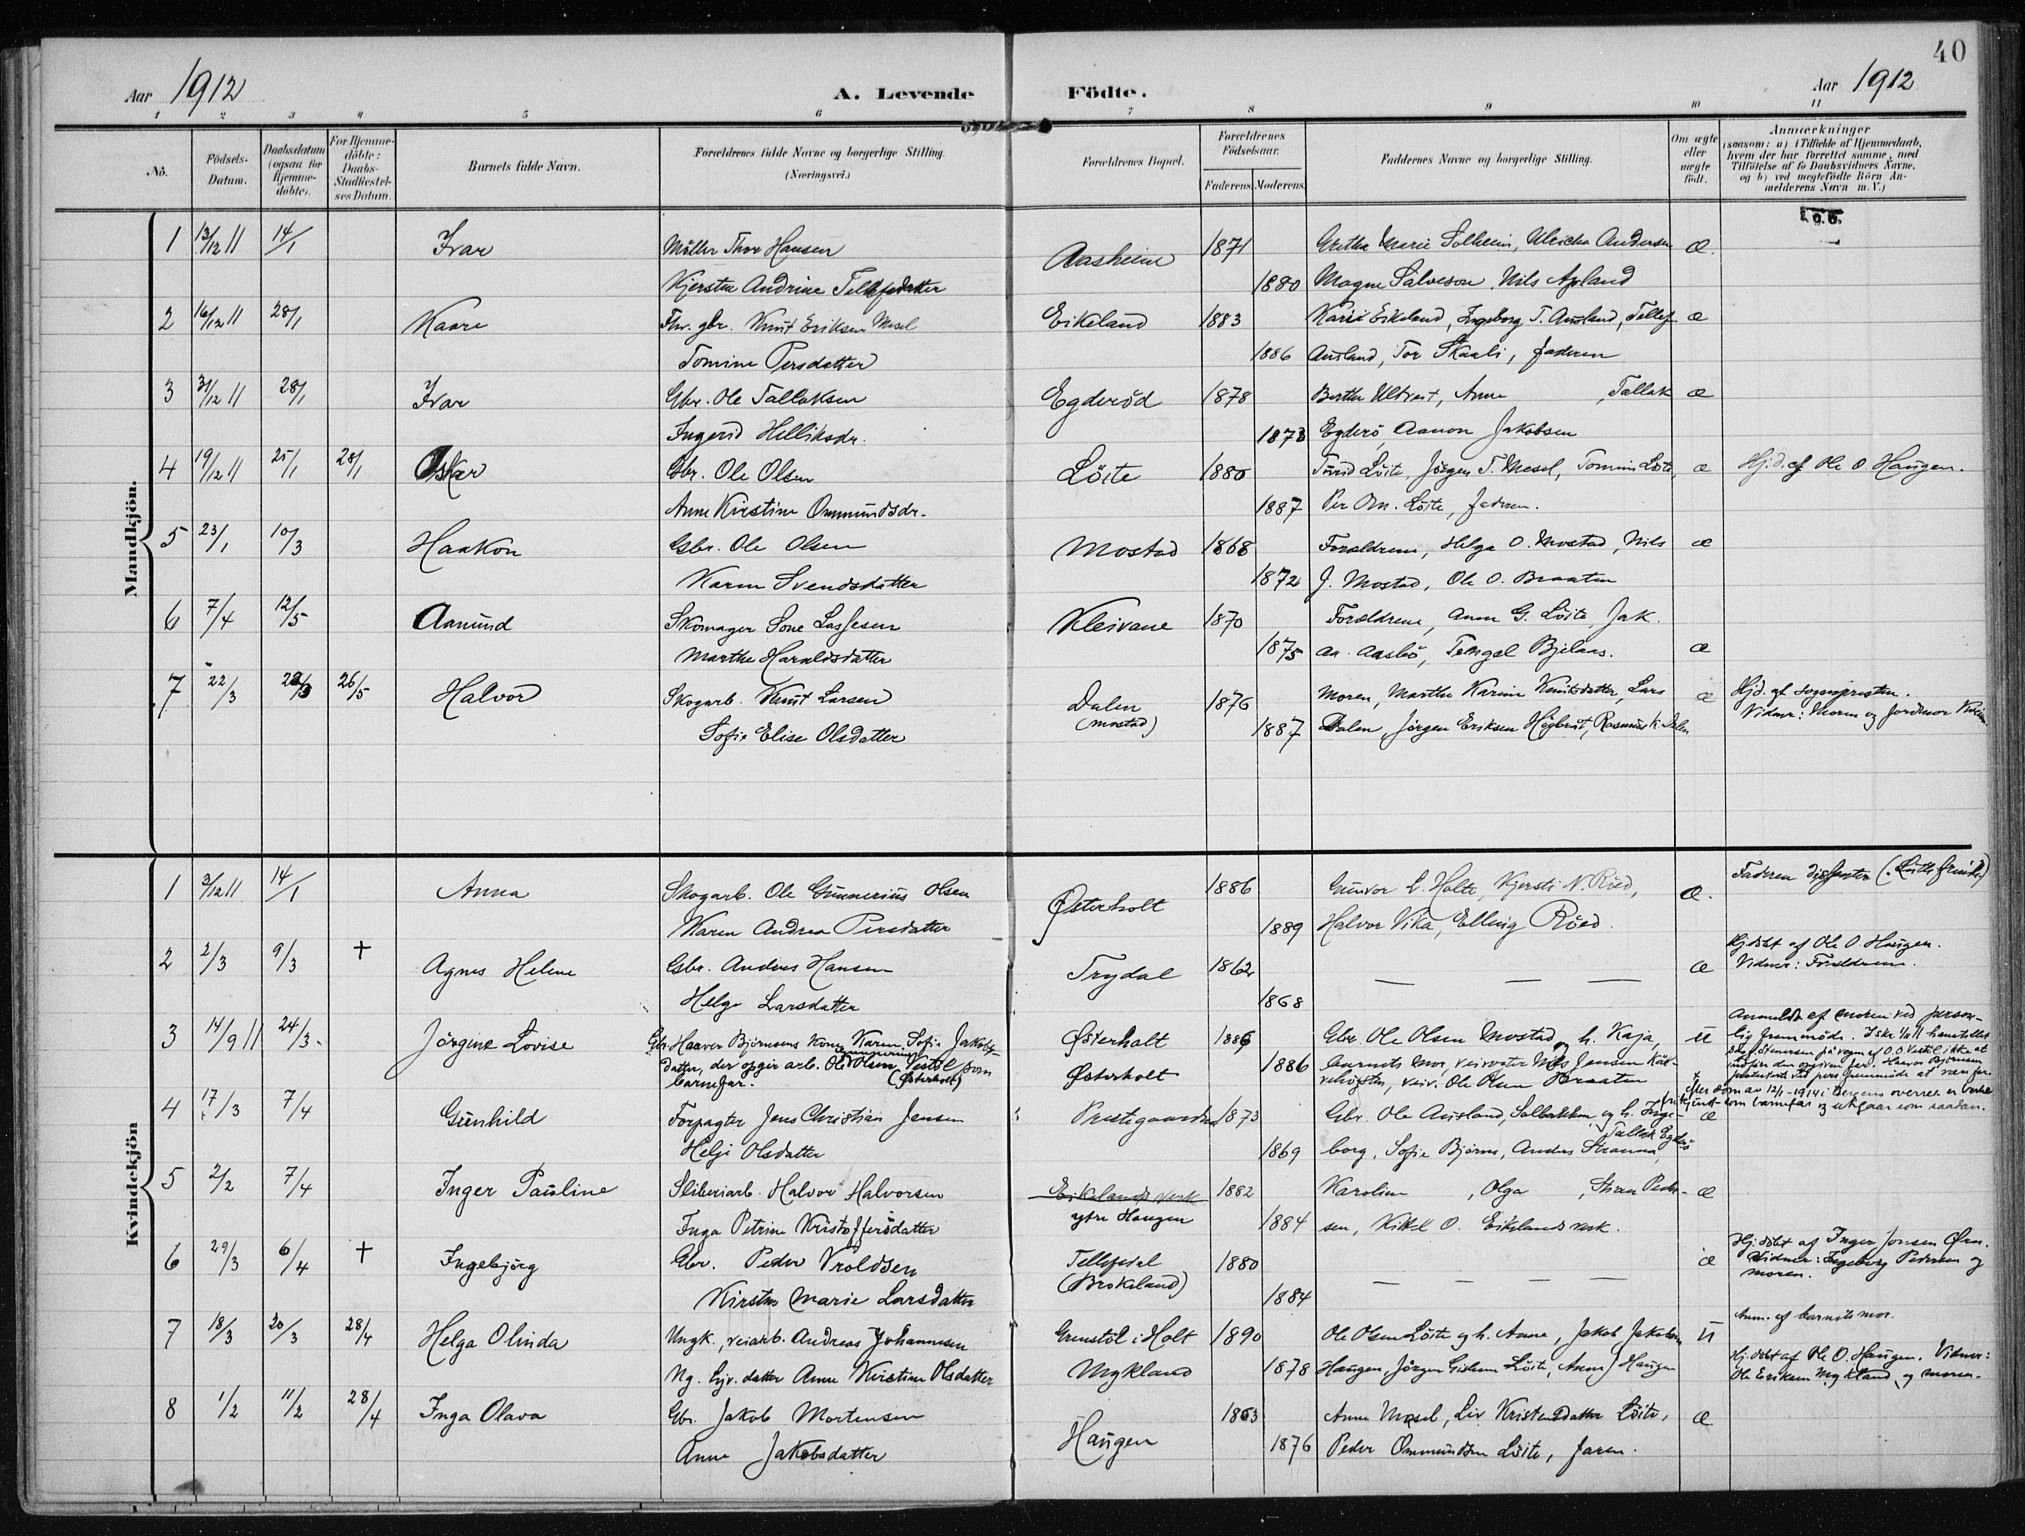 40
Aar 1912
A. Levende Födte.
Aar 1912
1 2 3 4 5 6 7 8 9 10 11
No. Födsels-Datum. Daabsdatum (ogsaa for Hjemme-döbte). For Hjemme-döbte: Daabs-Stadfæstel-ses Datum. Barnets fulde Navn. Forældrenes fulde Navne og borgerlige Stilling. (Næringsvei.) Forældrenes Bopæl. Forældrenes Födselsaar. Faderens. Moderens. Faddernes Navne og borgerlige Stilling. Om ægte eller uægte födt. Anmærkninger (saasom: a) i Tilfælde af Hjemmedaab, hvem der har forrettet samme, med Tilföielse af to Daabsvidners Navne, og b) ved uegtefödte Börn Anmelderens Navn m. V.)
Mandkjön.
1 13/12 11 14/1 Ivar Möller Thor Hansen Aasheim 1871 Grethe Marie Solheim, Ulricha Andersen æ.
Kjersten Andrine Tellefsdatter 1880 Magne Salveson, Nils Apland
2 16/12 11 28/1 Kaare Fhv. gbr. Knut Eriksen Mesel Eikeland 1883 Kari Eikeland, Ingeborg T. Ausland, Tellef æ
Tomine Persdatter 1886 Ausland, Tor Skaali, faderen
3 31/12 11 28/1 Ivar Gbr. Ole Tallaksen Egderöd 1878 Berthe Ultveit, Anne , Tallak æ
Ingerid Helliksdr. 1873 Egderö, Aanon Jakobsen
4 19/12 11 25/1 28/1 Oskar Gbr. Ole Olsen Löite 1880 Turid Löite, Jörgen T. Mesel, Tomine Löite, æ Hj.d. af Ole O. Haugen.
Anne Kirstine Ommundsdr. 1887 Per Om. Löite, faderen.
5 23/1 10/3 Haakon Gbr. Ole Olsen Mostad 1868 Forældrene, Helga O. Mostad, Nils æ
Karen Svendsdatter 1872 J. Mostad, Ole O. Braaten
6 7/4 12/5 Aamund Skomager Sone Lassesen Kleivane 1870 Forældrene, Anne G. Löite, Jak.
Marthe Haraldsdatter 1875 Aa. Aasbö, Tengel Bjelaas. æ
7 22/3 23/3 26/5 Halvor Skogarb. Knut Larsen Dalen 1876 Moren, Marthe Karine Knutsdatter, Lars æ Hjd. af sognepresten.
Sofie Elise Olsdatter (Mostad) 1887 Dalen, Jörgen Eriksen Högbraat, Rasmus K. Dalen Vidner: Moren og jordmor
Kvindekjön
1 3/12 11 14/1 Anna Skogarb. Ole Gunnerius Olsen Østerholt 1886 Gunvor L. Holte, Kjersti N. Röed, æ. Faderen dissenter
Karen Andrea Persdatter 1889 Halvor Vika, Elling Röed.
2 2/3 9/3 + Agnes Helene Gbr. Anders Hansen Trydal 1862 — — — æ Hj.döbt af Ole O. Haugen.
Helge Larsdatter 1868 Vidner: Forældrene.
3 14/9 11 24/3 Jörgine Lovise Gbr. Haaver Björnsens kone Karen Sofie Jakobs- Østerholt 1886 Gbr. Ole Olsen Mostad og h. Kaja, u Anmeldt af moren ved person-
datter, der opgir arb. Ole Olsen Vestöl som Østerholt 1886 Barnets mor, veivogter Nils Jensen lig fremmöde.
barnefar. (Østerholt) veiv. Ole Olsen Braaten
4 17/3 7/4 Gunhild Forpagter Jens Christian Jensen Prestegaarden 1873 Gbr. Ole Ausland, Solbakken, og h. Inge- æ
Helje Olsdatter 1869 borg, Sofie Björns, Anders Tallak
5 2/2 7/4 Inger Pauline Sliberiarb. Halvor Halvorsen Eikelands verk 1882 Karoline , Olga , Peder- æ
Inga Petrine Kristoffersdatter ytre Haugen 1884 sen, Kittel O. Eikelands verk.
6 29/3 6/4 + Ingebjörg Gbr. Peder Vroldsen Tellefsdal 1880 — — — — æ Hj.döbt af Inger Jonsen Örn.
Kirsten Marie Larsdatter (Brokeland) 1884 Vidner: Ingeborg Pedersen og moren.
7 18/3 20/3 28/4 Helga Olinda Ungk., veiarb. Andreas Johannesen Grenstöl i Holt 1890 Ole Olsen Löite og h. Anne, Jakob Jakobsen u Anm. af barnets mor.
Ug. Gbr. datter Anne Kirstine Olsdatter Mykland 1878 Haugen, Jörgen Löite, Anne J. Haugen Hj.döbt af Ole O. Haugen. Vidner: Ole Eriksen Mykland og moren.
8 1/2 11/2 28/4 Inga Olava Gbr. Jakob Mortensen Haugen 1863 Anne Mesel, Liv Kristensdatter Löite, æ
Anne Jakobsdatter 1876 Peder Ommundsen Löite, faren.